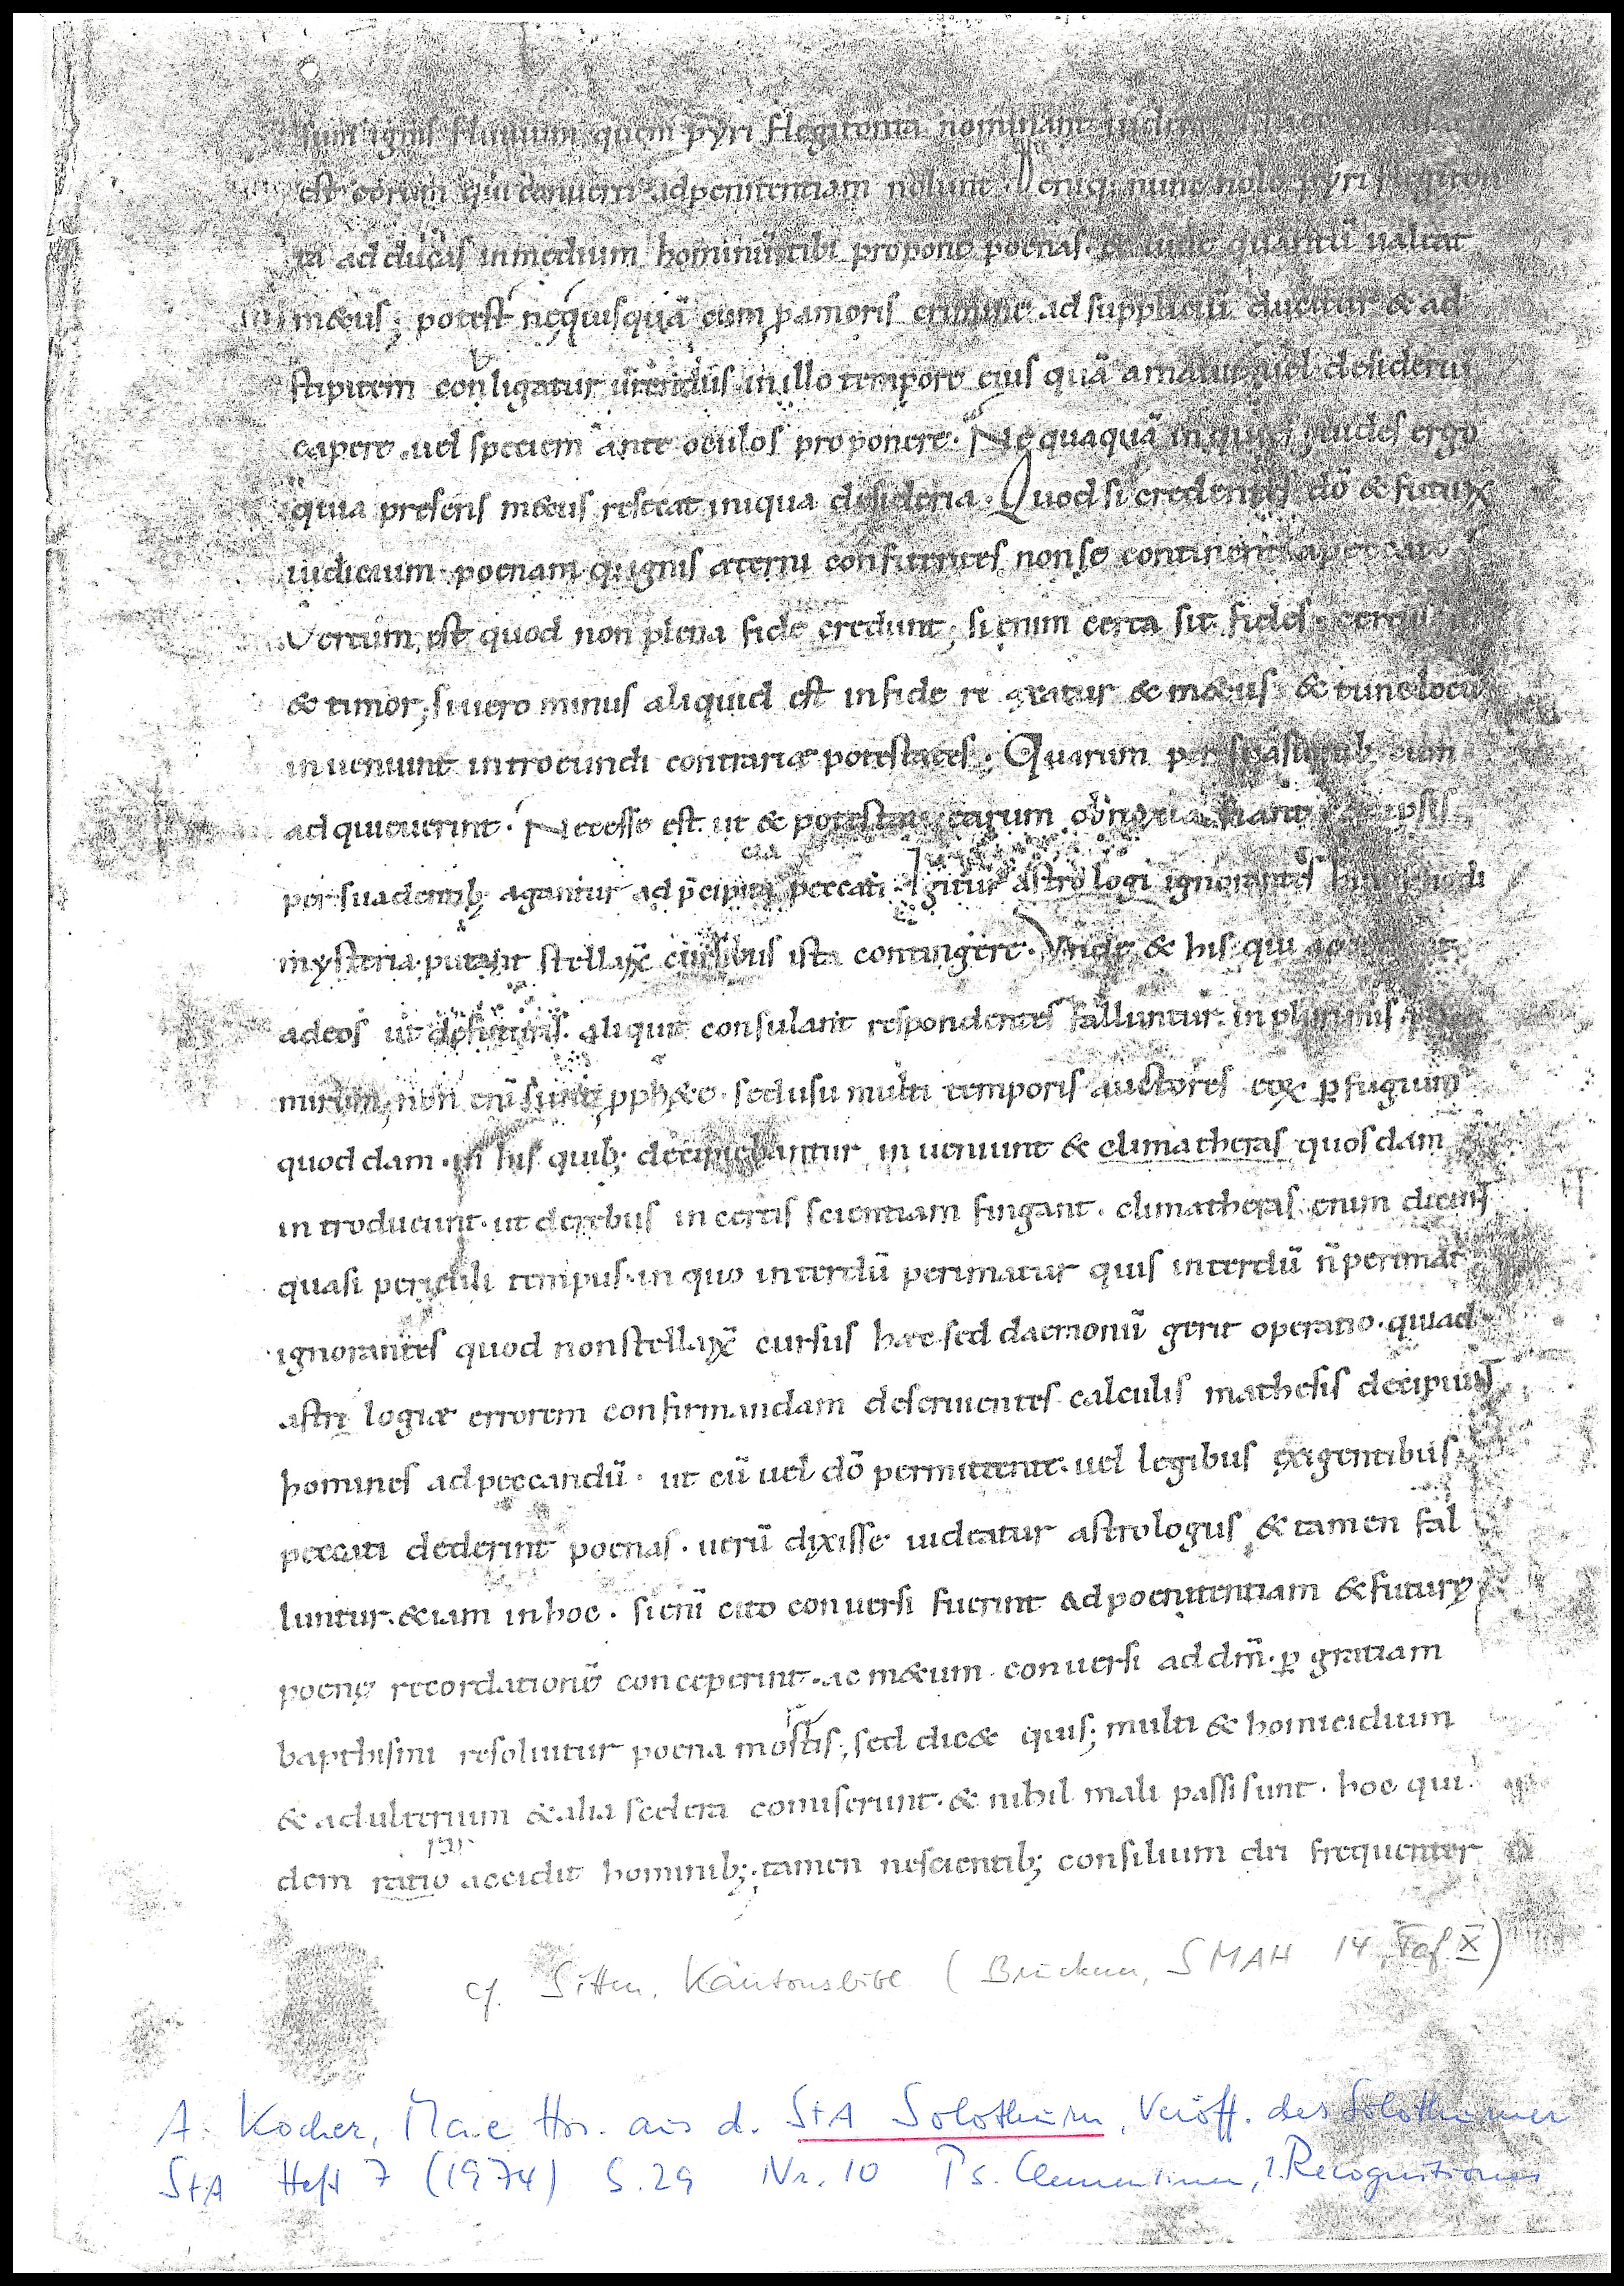 sunt ignis fluuium quem pyri flegitonta nominant
est eorum qui conuerti adpenitentiam nolunt · Deniq; nunc nolo pyri flegiton
ta adducas inmedium hominũ tibi propono poenas · & uide quantũ ualeat
m&us; potest nequisquã cum p amoris crimine ad suppliciũ ducitur & ad
stipitem conligatur urendus in illo tempore eius quã amauit uel desideriũ
capere · uel speciem ante oculos proponere · Nequaquã inquies; uides ergo
qua presens m&us resecat iniqua desideria · Quod si credentes dõ & futuꝝ
iudicium · poenam q; ignis æterni confitentes non se continent apeccato
Certum est quod non plena fide credunt; si enim certa sit fides · certus
& timor; si uero minus aliquid est infide re axatur & m&us & tunc locũ
inueniunt introeundi contrariæ potestates · Quarum persuasionib; cum
adquieuerint · Necesse est ut & potestati earum obnoxia fiant & ipsis
persuadentib; agantur ad p̃cipitia peccati · Igitur astrologi ignorantes huiusmodi
cia
mysteria · putant stellaꝝ cursibus ista contingere · Vnde & his qui
adeos ut defuturis · aliquit consulant respondentes falluntur · in plurimis ·
mirum; non enĩ sunt pph&e · sed usu multi temporis auctores eoꝝ ꝑfugium
quod dam · in his quib; decipiebantur inueniunt & climatheras quosdam
introducunt · ut derebus incertis scientiam fingant · climatheras enim dicunt
quasi periculi tempus · in quo interdũ perimatur quis interdũ ñ perimat
ignorantes quod non stellaꝝ cursus hæc sed daemonũ gerit operatio · qui ad
astri logiæ errorem confirmandam deseruientes calculis mathesis decipiunt
homines adpeccandũ · ut cũ uel dõ permittente · uel legibus exigentibus
peccati dederint poenas · uerũ dixisse uideatur astrologus & tamen fal
luntur · &iam inhoc · si enĩ cito conuersi fuerint ad poenitentiam & futurę
poenę recordationẽ conceperint · ac m&um · conuersi ad dm̃ · ꝑ gratiam
bapthismi resoluitur poena mortis; sed dic& quis; multi & homicidium
& adulterium & alia scelera commiserunt · & nihil mali passi sunt · hoc qui
dem ratio accidit hominib; · tamen nescientib; consilium dei frequenter
cf. Sitten, Kantonsbibl (Bruckner, SMAH 14 Taf. X)
A. Kocher, Ma.e Hss. aus d. StA Solothurn, Veröff. des Solothurner
StA Heft 7 (1974) S. 29 Nr. 10 Ps. Clementinen, ?. Recognitiones